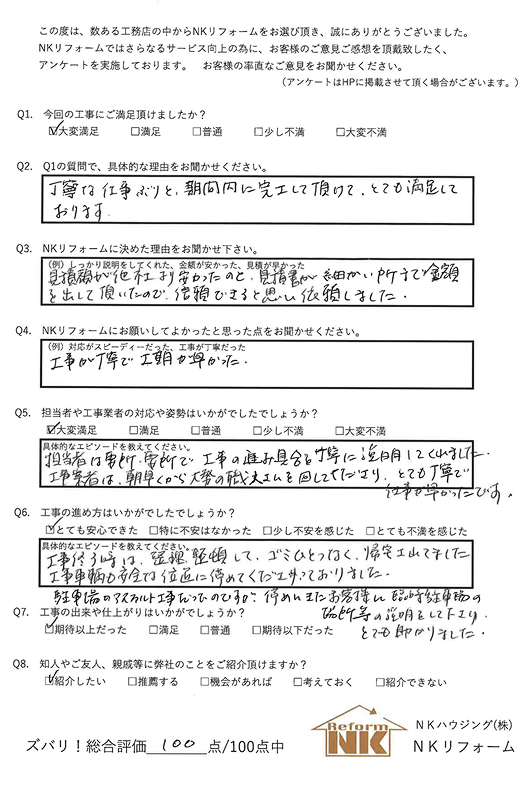 この度は、数ある工務店の中からNKリフォームをお選び頂き、誠にありがとうございました。
NKリフォームではさらなるサービス向上の為に、お客様のご意見ご感想を頂戴致したく、
アンケートを実施しております。 お客様の率直なご意見をお聞かせください。
（アンケートはHPに掲載させて頂く場合がございます。）
Q1. 今回の工事にご満足頂けましたか？
☑大変満足 □満足 □普通 □少し不満 □大変不満
Q2. Q1の質問で、具体的な理由をお聞かせください。
丁寧な仕事ぶりと、期間内に完工して頂けて、とても満足して
おります。
Q3. NKリフォームに決めた理由をお聞かせ下さい。
（例）しっかり説明をしてくれた、金額が安かった、見積が早かった
見積額が他社より安かったのと、見積書が細かい所まで金額
を出して頂いたので、信頼できると思い依頼しました。
Q4. NKリフォームにお願いしてよかったと思った点をお聞かせください。
（例）対応がスピーディーだった、工事が丁寧だった
工事が丁寧で工期が早かった。
Q5. 担当者や工事業者の対応や姿勢はいかがでしたでしょうか？
☑大変満足 □満足 □普通 □少し不満 □大変不満
具体的なエピソードを教えてください。
担当者は要所、要所で工事の進み具合を丁寧に説明してくれました。
工事業者は、朝早くから大勢の職人さんを回してくださり、とても丁寧で
仕事が早かったです。
Q6. 工事の進め方はいかがでしたでしょうか？
☑とても安心できた □特に不安はなかった □少し不安を感じた □とても不満を感じた
具体的なエピソードを教えてください。
工事終了時は、整理整頓して、ゴミひとつなく、帰宅されてました
工事車輌も安全な位置に停めてくださっておりました。
駐車場のアスファルト工事だったのですが、停めれないお客様に臨時駐車場の
場所等の説明をして下さり、
とても助かりました。
Q7. 工事の出来や仕上がりはいかがでしょうか？
☑期待以上だった □満足 □普通 □期待以下だった
Q8. 知人やご友人、親戚等に弊社のことをご紹介頂けますか？
☑紹介したい □推薦する □機会があれば □考えておく □紹介できない
ズバリ！総合評価 100 点/100点中
Reform
NK
NKハウジング(株)
NKリフォーム